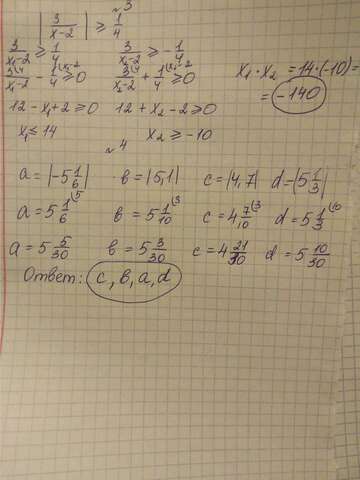 №3
|3/(x-2)| ≥ 1/4
3/(x₁-2) ≥ 1/4 3/(x₂-2) ≥ -1/4
3⁽⁴/(x₁-2) - 1⁽ˣ¹⁻²/4 ≥ 0 3⁽⁴/(x₂-2) + 1⁽ˣ²⁻²/4 ≥ 0
12 - x₁ + 2 ≥ 0 12 + x₂ - 2 ≥ 0
x₁ ≤ 14 x₂ ≥ -10
x₁ · x₂ = 14·(-10) =
= -140
№4
a = |-5 1/6| в = |5,1| c = |4,7| d = |5 1/3|
a = 5 1/6⁽⁵ в = 5 1/10⁽³ c = 4 7/10⁽³ d = 5 1/3⁽¹⁰
a = 5 5/30 в = 5 3/30 c = 4 21/30 d = 5 10/30
Ответ: c, в, a, d